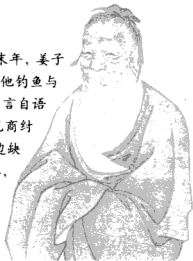 末年，姜子
他钓鱼与
言自语
商纣